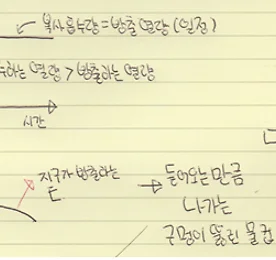 복사흡수량=방출 열량 (일정)
수하는 열량 > 방출하는 열량
시간
지구가 방출하는
E
→ 들어오는 만큼
나가는
구멍이 뚫린 물컵